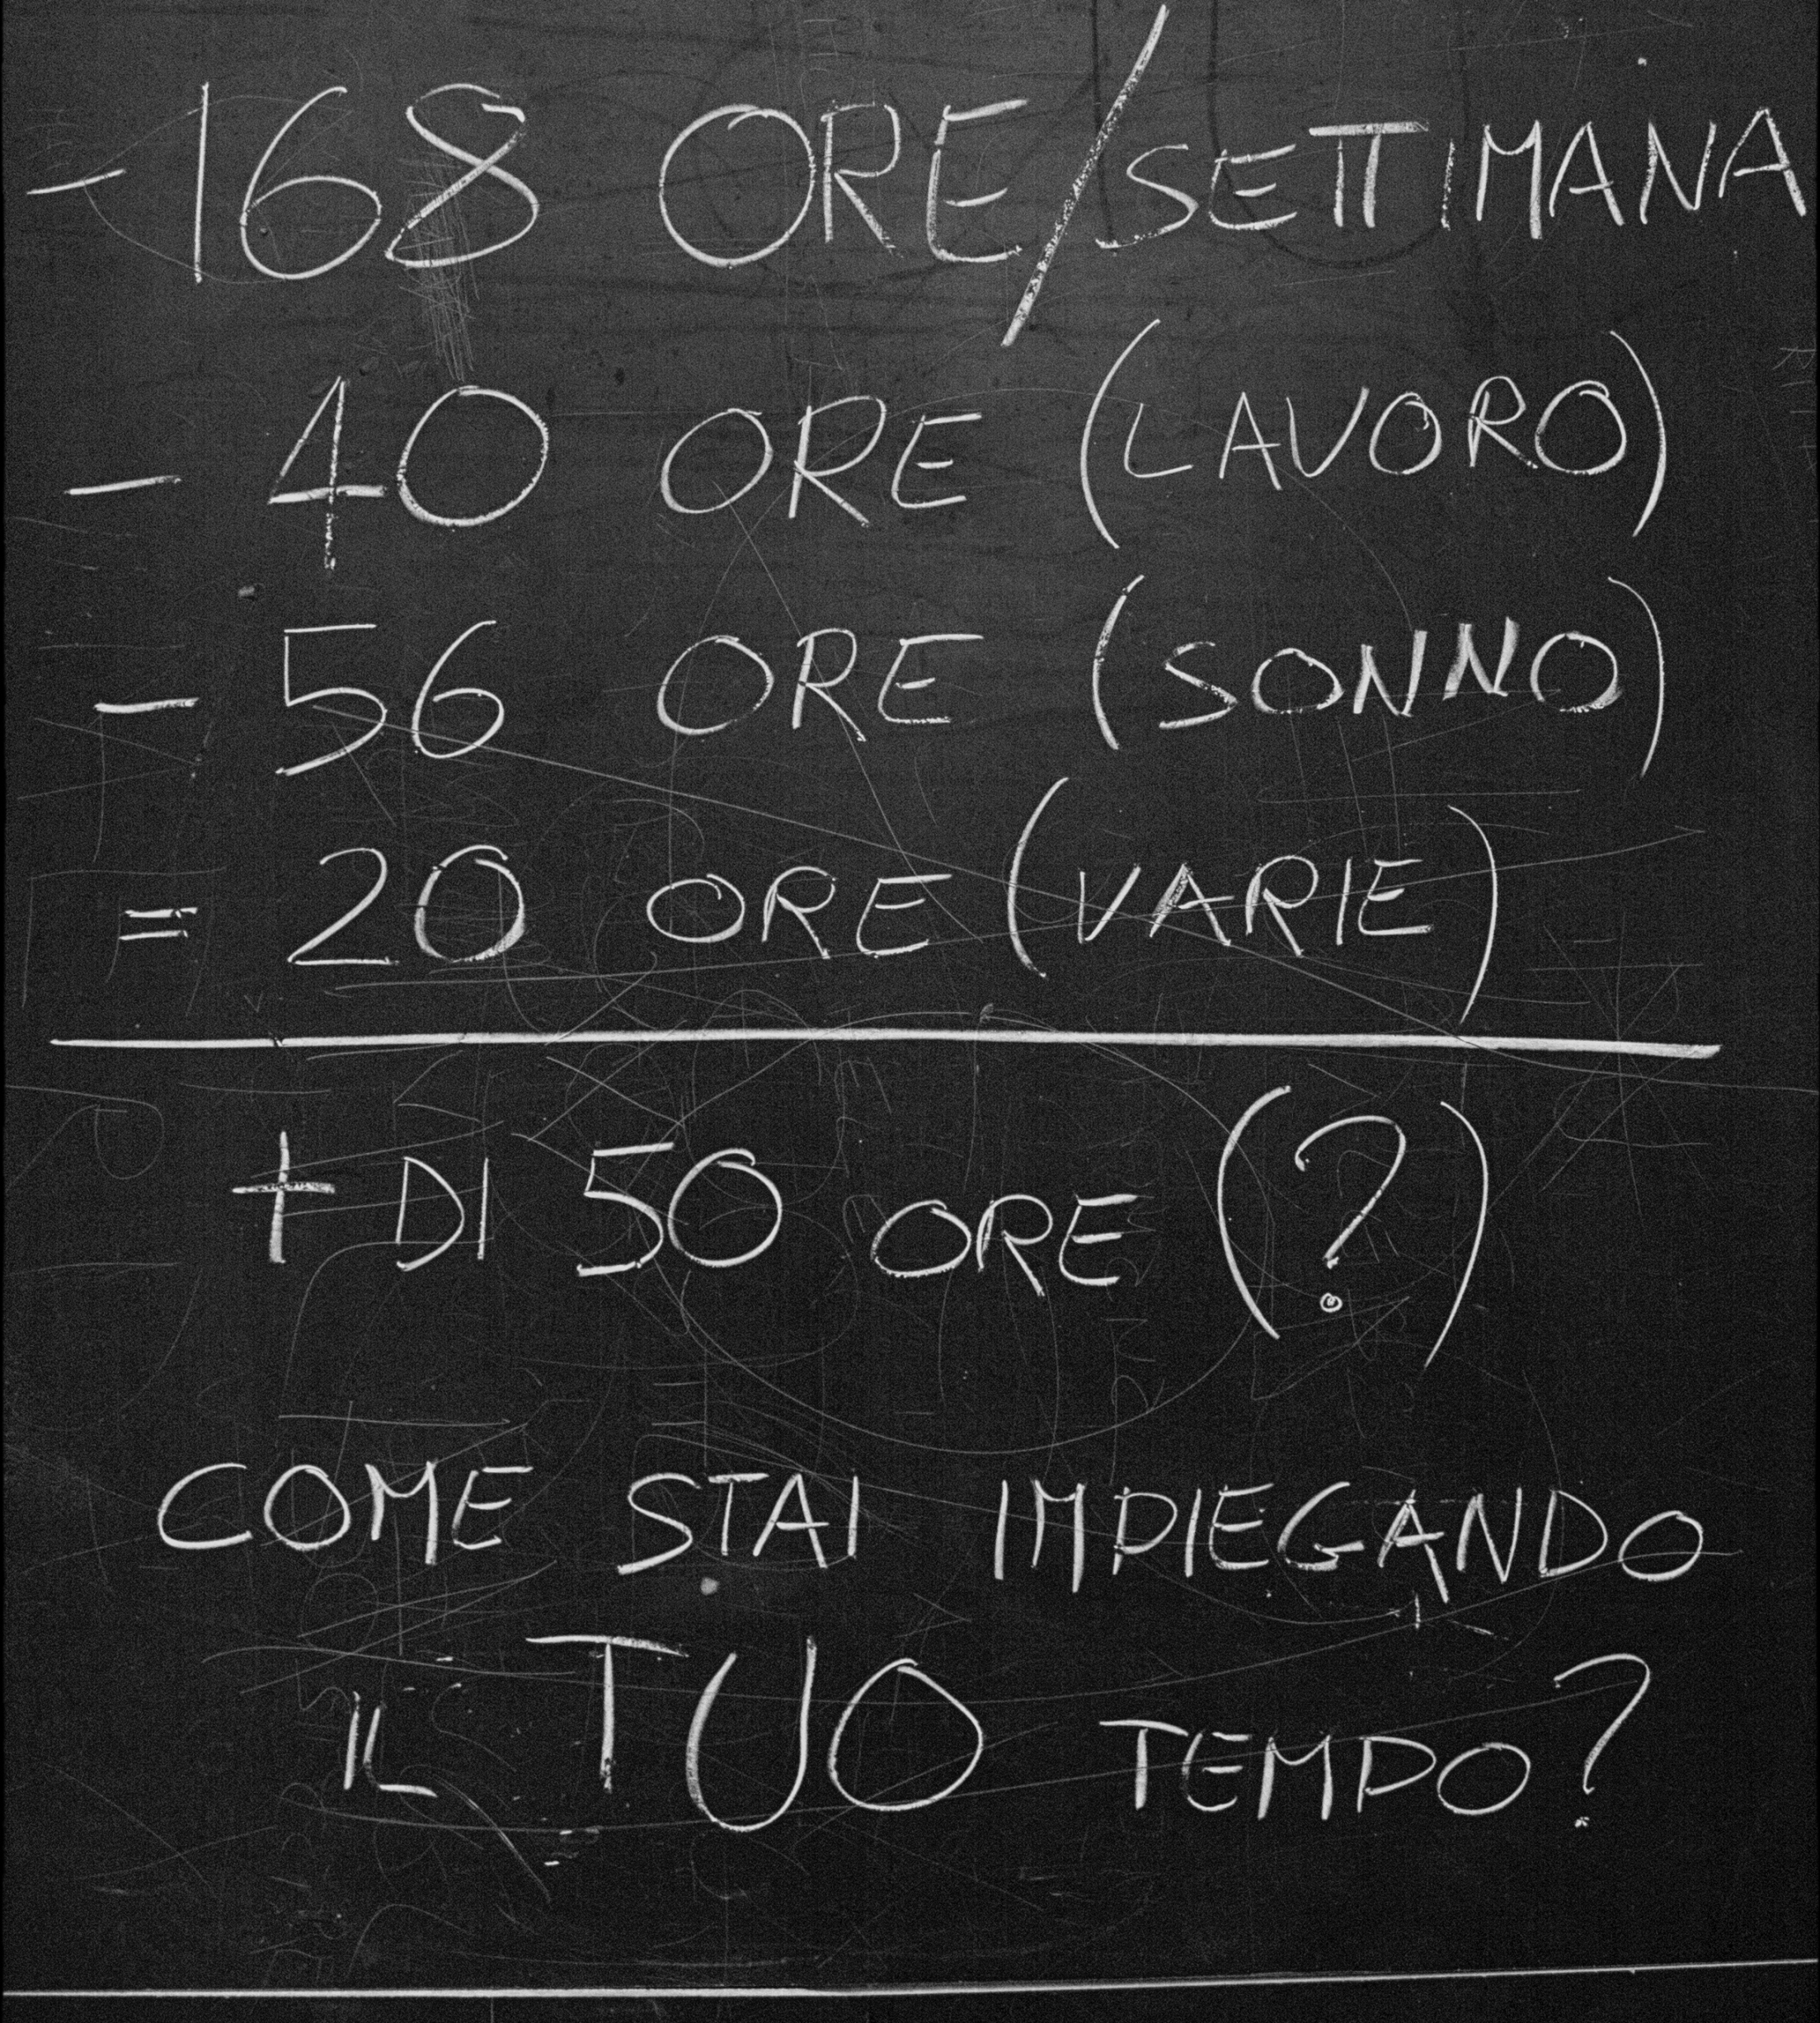 - 168 ORE/SETTIMANA
- 40 ORE (LAVORO)
- 56 ORE (SONNO)
= 20 ORE (VARIE)
+ DI 50 ORE (?)
COME STAI IMPIEGANDO
IL TUO TEMPO?